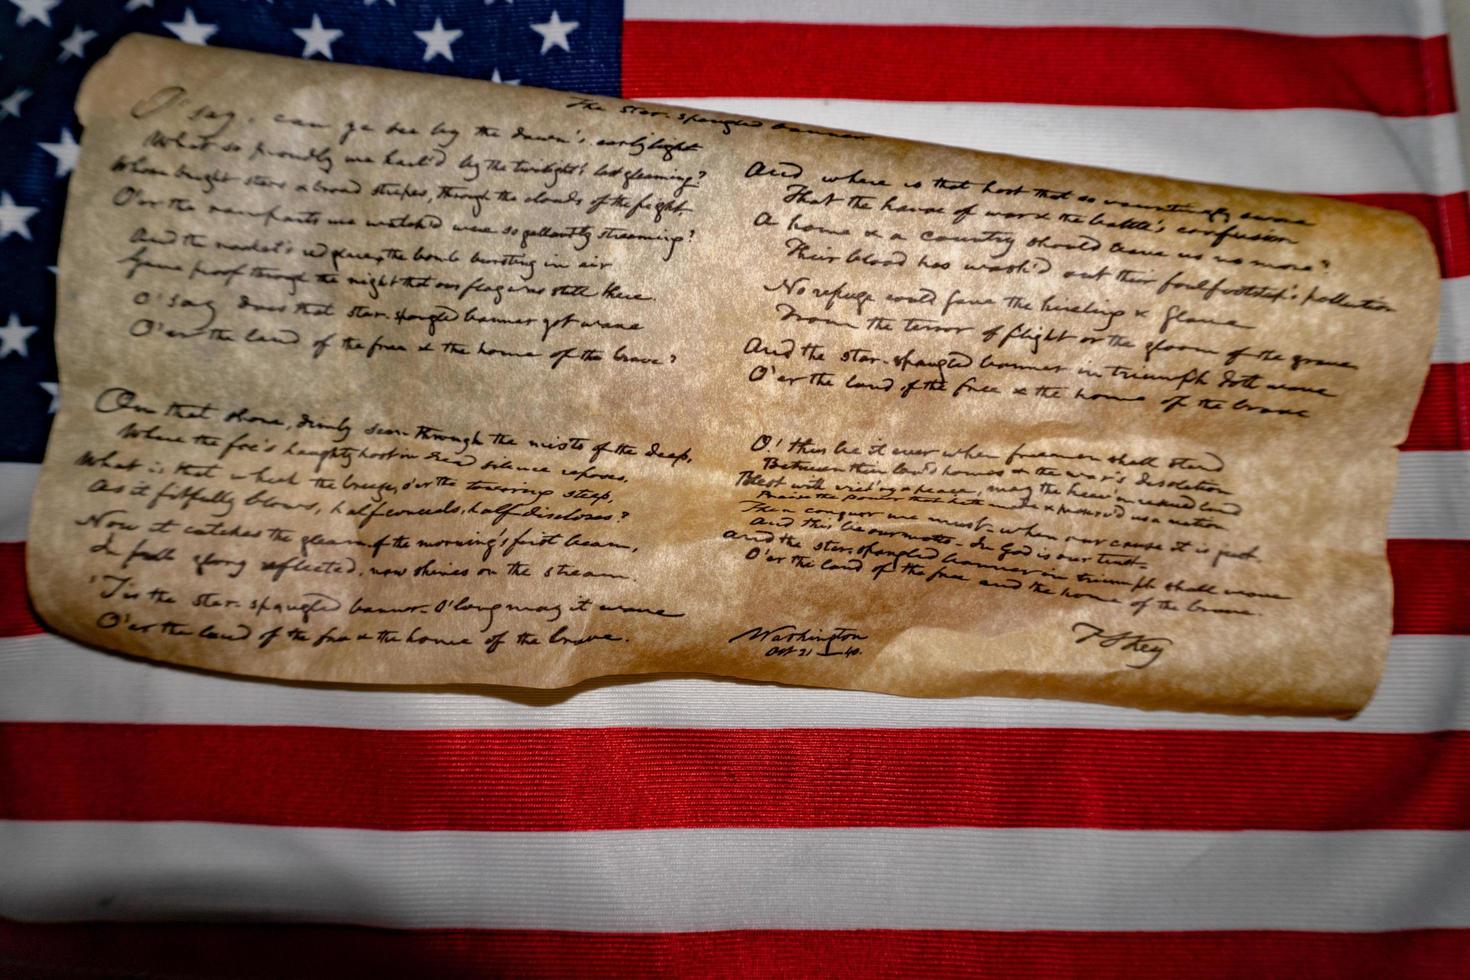 The Star-spangled banner
O! say, can ye see by the dawn's early light
What so proudly we hail'd by the twilight's last gleaming?
Whose bright stars & broad stripes, through the clouds of the fight,
O'er the ramparts we watch'd were so gallantly streaming?
And the rocket's red glare, the bomb bursting in air
Gave proof through the night that our flag was still there.
O! say does that star-spangled banner yet wave
O'er the land of the free & the home of the brave?
On that shore, dimly seen through the mists of the deep,
Where the foe's haughty host in dread silence reposes,
What is that which the breeze, o'er the towering steep,
As it fitfully blows, half conceals, half discloses?
Now it catches the gleam of the morning's first beam,
In full glory reflected, now shines on the stream.
'Tis the star-spangled banner - O! long may it wave
O'er the land of the free & the home of the brave.
And where is that host that so vauntingly swore
That the havoc of war & the battle's confusion
A home & a country should leave us no more?
Their blood has wash'd out their foul footstep's pollution
No refuge could save the hireling & slave
From the terror of flight or the gloom of the grave
And the star-spangled banner in triumph doth wave
O'er the land of the free & the home of the brave
O! thus be it ever when freemen shall stand
Between their lov'd homes & the war's desolation
Blest with vict'ry & peace, may the heav'n rescued land
Praise the power that hath made & preserv'd us a nation
Then conquer we must - when our cause it is just
And this be our motto - In God is our trust
And the star-spangled banner in triumph shall wave
O'er the land of the free and the home of the brave.
Washington
Oct 21 - 40.
F S Key